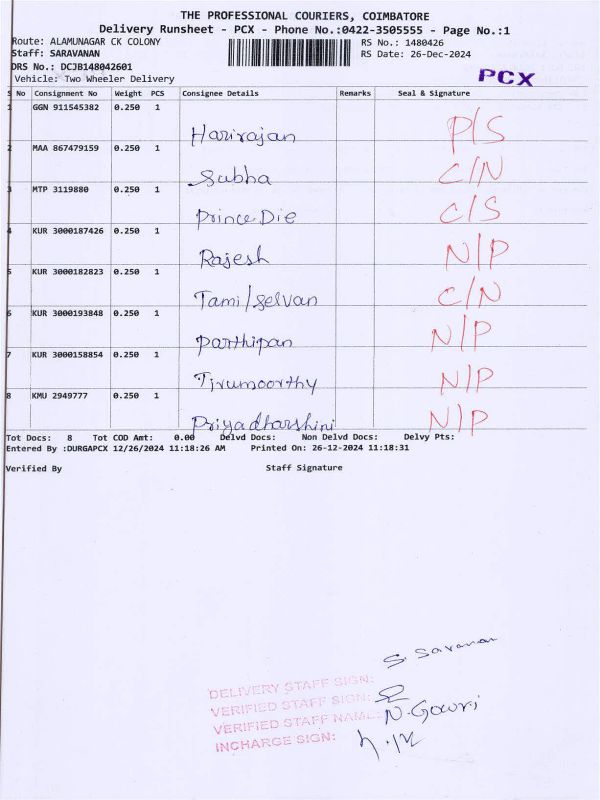 THE PROFESSIONAL COURIERS, COIMBATORE
Delivery Runsheet - PCX - Phone No.:0422-3505555 - Page No.:1
Route: ALAMUNAGAR CK COLONY RS No.: 1480426
Staff: SARAVANAN RS Date: 26-Dec-2024
DRS No.: DCJB148042601
Vehicle: Two Wheeler Delivery PCX
S No Consignment No Weight PCS Consignee Details Remarks Seal & Signature
1 GGN 911545382 0.250 1 Harirajan P/S
2 MAA 867479159 0.250 1 Subha C/N
3 MTP 3119880 0.250 1 Prince Die C/S
4 KUR 3000187426 0.250 1 Rajesh N/P
5 KUR 3000182823 0.250 1 Tamilselvan C/N
6 KUR 3000193848 0.250 1 Parthipan N/P
7 KUR 3000158854 0.250 1 Tirumoorthy N/P
8 KMU 2949777 0.250 1 Priyadharshini N/P
Tot Docs: 8 Tot COD Amt: 0.00 Delvd Docs: Non Delvd Docs: Delvy Pts:
Entered By :DURGAPCX 12/26/2024 11:18:26 AM Printed On: 26-12-2024 11:18:31
Verified By Staff Signature
DELIVERY STAFF SIGN: S. Savanan
VERIFIED STAFF SIGN:
VERIFIED STAFF NAME: N. Gowri
INCHARGE SIGN: